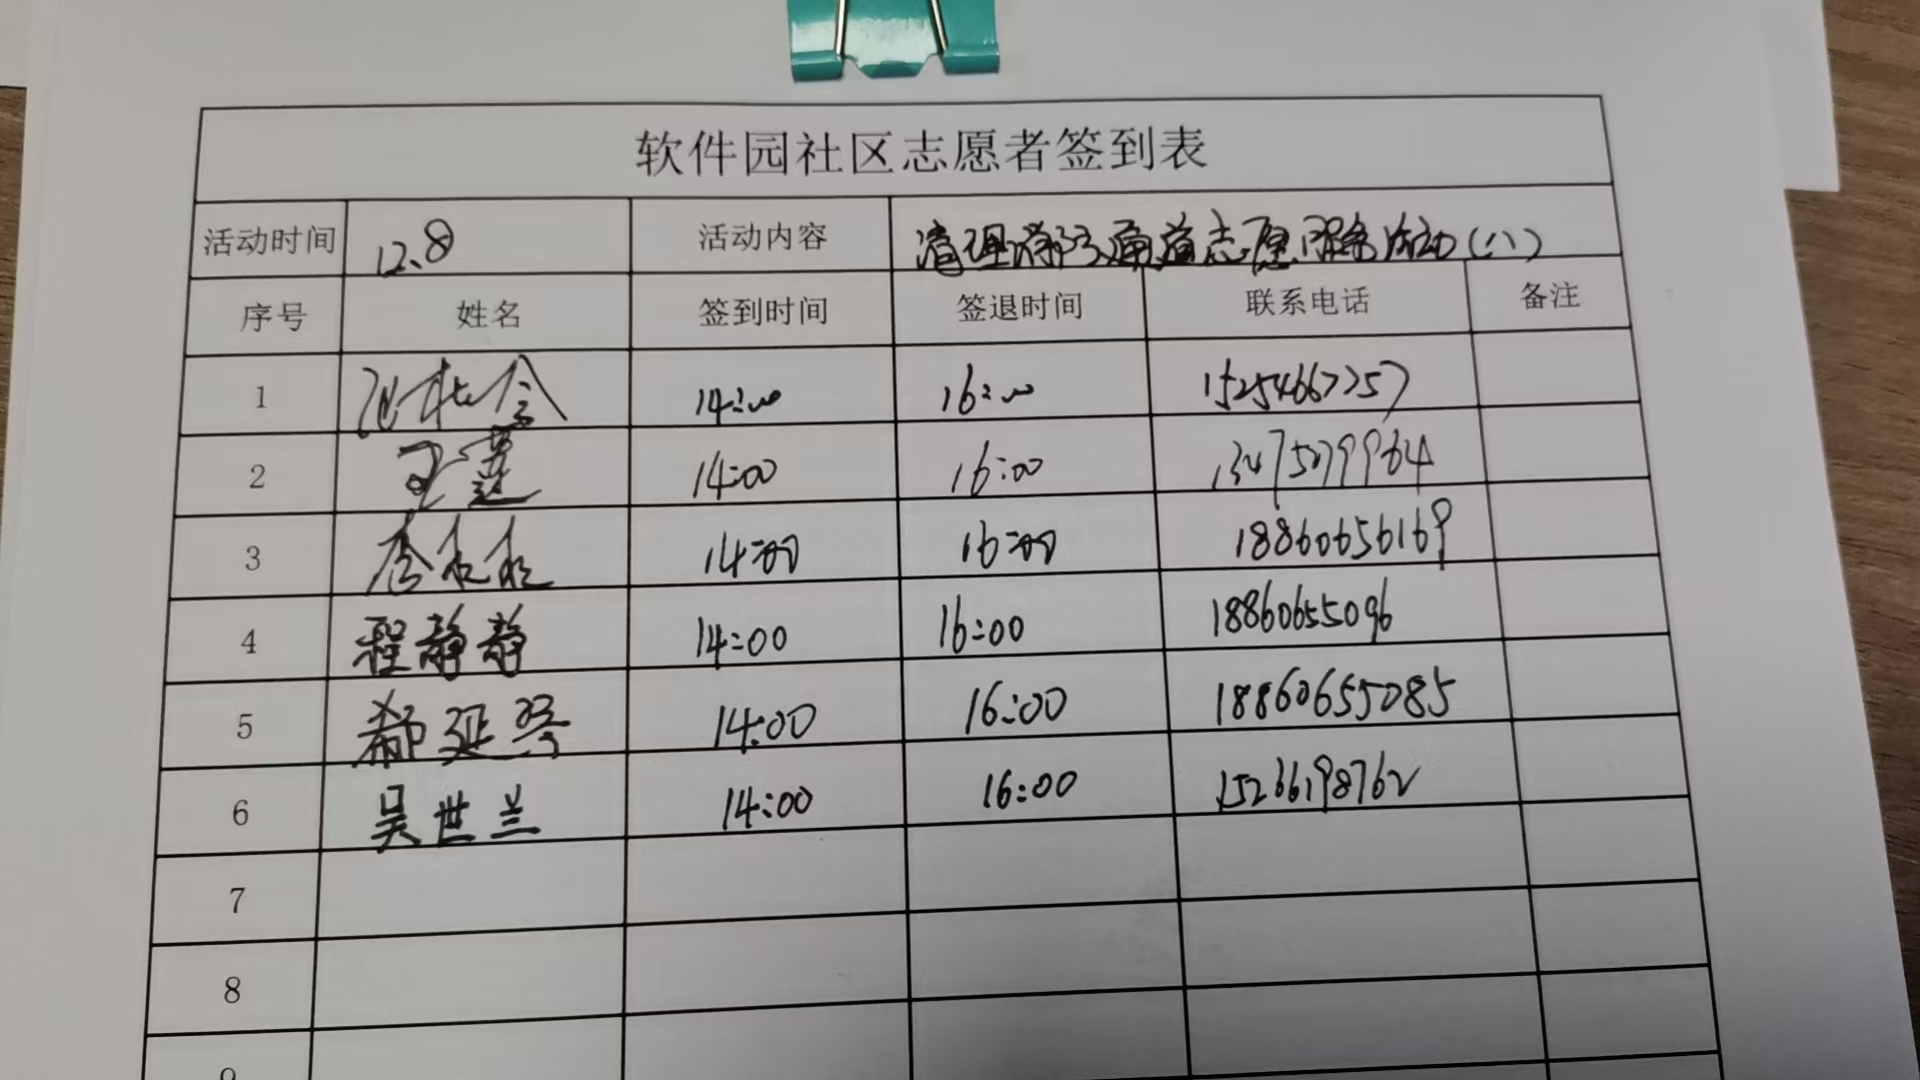 软件园社区志愿者签到表
活动时间 12.8 活动内容 清理消防通道志愿服务活动(八)
序号 姓名 签到时间 签退时间 联系电话 备注
1 14:00 16:00 15254667257
2 王莲 14:00 16:00 13475079964
3 李永永 14:00 16:00 18860656169
4 程静静 14:00 16:00 18860655096
5 郗延琴 14:00 16:00 18860655085
6 吴世兰 14:00 16:00 15266198762
7
8
9